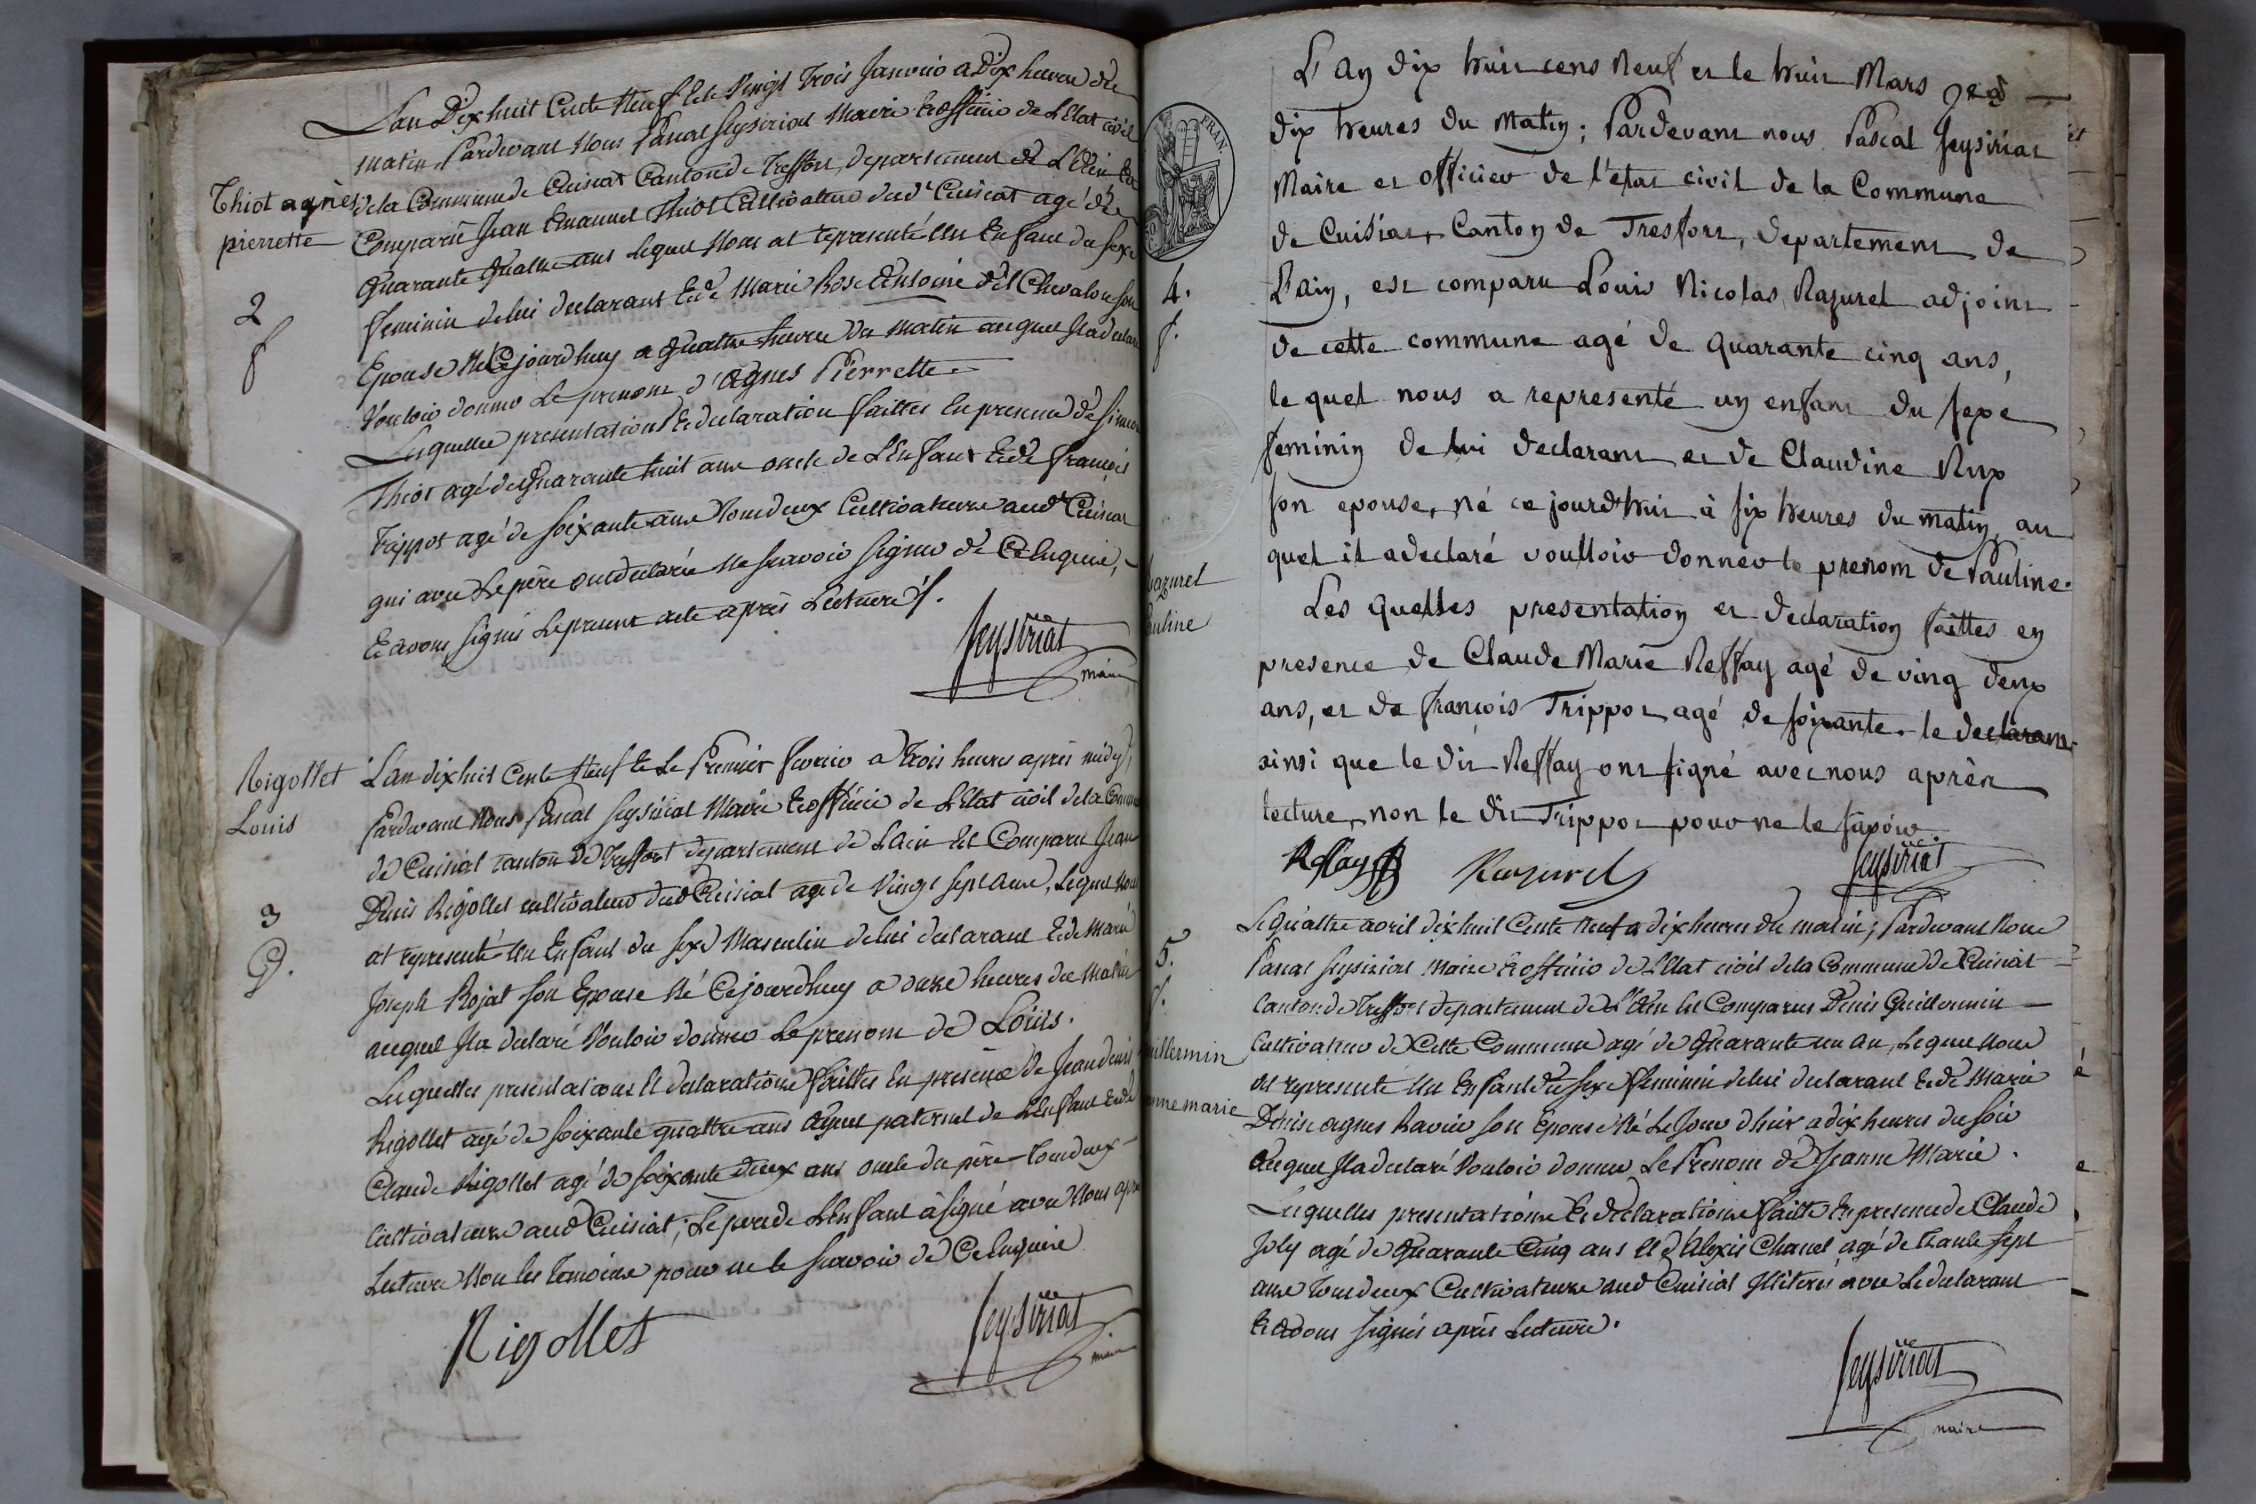 L'an Dix huit Cents Neuf et le Vingt Trois Janvier a Dix heures du
matin, Pardevant Nous Pascal Seysiriat Maire et officier de L'Etat civil
Thiot agnès
pierrette
2
f
de la Commune de Cuisiat Canton de Treffort, departement de L'Ain est
Comparu Jean Emanuel Thiot Cultivateur dud't Cuisiat agé de
Quarante quatre ans lequel Nous at representé un Enfant du sexe
feminin de lui declarant et de Marie Rose Antoine del Chevalon son
Epouse Né Cejourdhuy a quattre heures du matin auquel Il a declaré
Vouloir donner Le prenom d'agnes Pierrette.
Lesquelles presentation et declaration faittes en presence de Simeon
Thiot agé de Quarante huit ans oncle de L'Enfant et de François
Trippot agé de soixante ans Tous deux Cultivateurs aud't Cuisiat
qui avec Le père ont declaré ne scavoir signer de Ce Enquis,
Et avons signés Le present acte après Lecture f.
Seysiriat
maire
Rigollet
Louis
3
G.
L'an dix huit Cents Neuf et Le Premier fevrier a Trois heures après midy,
Pardevant Nous Pascal Seysiriat Maire et officier de L'Etat civil de la Commune
de Cuisiat canton de Treffort departement de L'ain Est Comparu Jean
Denis Rigollet cultivateur dud Cuisiat agé de Vingt sept ans, Lequel Nous
at representé un Enfant du sexe Masculin de lui declarant et de Marie
Joseph Rojat son Epouse Né Cejourdhuy a onze heures du Matin
auquel Il a declaré Vouloir donner Le prenom de Louis.
Lesquelles presentations et declarations faittes en presence de Jean denis
Rigollet agé de soixante quattre ans Ayeul paternel de L'Enfant et de
Claude Rigollet agé de soixante deux ans oncle du père Tous deux
Cultivateurs aud Cuisiat; Le pere de L'Enfant à signé avec Nous apres
Lecture Non les temoins pour ne le scavoir de Ce Enquis
Rigollet
Seysiriat
maire
FRAN.
4.
f.
Razurel
Pauline
L'an dix huit cens neuf et le huit Mars
dix heures du matin; Pardevant nous Pascal Seysiriat
Maire et officier de l'etat civil de la Commune
de Cuisiat, Canton de Tresfort, departement de
L'ain, est comparu Louis Nicolas Razurel adjoint
de cette commune agé de quarante cinq ans,
le quel nous a representé un enfant du sexe
feminin de lui declarant et de Claudine Rux
son epouse, né ce jourd'hui à six heures du matin, au
quel il a declaré voulloir donner le prenom de Pauline.
Les quelles presentation et declaration faittes en
presence de Claude Marie Reffay agé de ving deux
ans, et de françois Trippot agé de soixante. le declarant
ainsi que le dit Reffay ont signé avec nous après
lecture, non le dit Trippot pour ne le sapoir
Reffay Razurel Seysiriat
5.
f.
Guillermin
Jeanne marie
Le quattre avril dix huit Cents Neuf a dix heures du matin; Pardevant Nous
Pascal Seysiriat Maire et officier de L'Etat civil de la Commune de Cuisiat
Canton de Treffort departement de L'Ain Est Comparus Denis Guillermin
Cultivateur de Cette Commune agé de Quarante un an, Lequel Nous
at representé un Enfant du sexe feminin de lui declarant et de Marie
Denise agnes Ravier son Epouse Né Le Jour d'hier a dix heures du soir
Auquel Il a declaré Vouloir donner Le Prenom de Jeanne Marie.
Lesquelles presentations et declarations faitte en presence de Claude
Joly agé de Quarante Cinq ans et d'Alexis Chanel agé de Trante sept
ans Tous deux Cultivateurs aud Cuisiat Illiterés avec Le declarant
Et avons signés après Lecture.
Seysiriat
maire